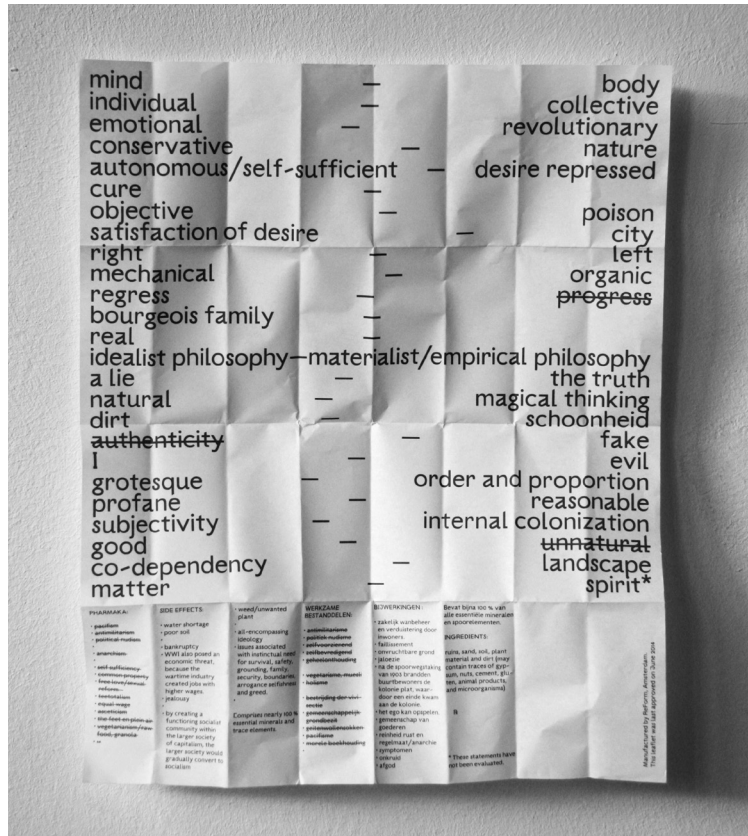 mind — body
individual — collective
emotional — revolutionary
conservative — nature
autonomous/self-sufficient — desire repressed
cure —
objective — poison
satisfaction of desire — city
right — left
mechanical — organic
regress — progress
bourgeois family —
real —
idealist philosophy—materialist/empirical philosophy
a lie — the truth
natural — magical thinking
dirt — schoonheid
authenticity — fake
I — evil
grotesque — order and proportion
profane — reasonable
subjectivity — internal colonization
good — unnatural
co-dependency — landscape
matter — spirit*
PHARMAKA:
· pacifism
· antimilitarism
· political nudism
· anarchism
· self sufficiency
· common property
· teetotalism
· equal wage
· asceticism
· vegetarianism/raw
food, granola
SIDE EFFECTS
· water shortage
· poor soil
· bankruptcy
· WWI also posed an
economic threat,
because the
wartime industry
created jobs with
higher wages.
· jealousy
· by creating a
functioning socialist
community within
the larger society
of capitalism, the
larger society would
gradually convert to
socialism
· weed/unwanted
plant
· all-encompassing
ideology
· issues associated
with instinctual need
for survival, safety,
grounding, family,
security, boundaries,
arrogance selfishness
and greed.
Comprises nearly 100 %
essential minerals and
trace elements
WERKZAME
BESTANDDELEN:
· antimilitarisme
· politiek nudisme
· zelfvoorzienend
· zelfbevredigend
· geheelonthouding
· vegetarisme, muesli
· holisme
· bestrijding der vivi-
sectie
· gemeenschappelijk
grondbezit
· geitenwollensokken
· pacifisme
· morele boekhouding
BIJWERKINGEN:
· zakelijk wanbeheer
en verduistering door
inwoners
· faillissement
· onvruchtbare grond
· jaloezie
· na de spoorwegstaking
van 1903 brandden
buurtbewoners de
kolonie plat, waar-
door een einde kwam
aan de kolonie.
· het ego kan opspelen
· gemeenschap van
goederen
· reinheid rust en
regelmaat/anarchie
· symptomen
· onkruid
· afgod
Bevat bijna 100 % van
alle essentiële mineralen
en spoorelementen.
INGREDIENTS:
ruins, sand, soil, plant
material and dirt (may
contain traces of gyp-
sum, nuts, cement, glu-
ten, animal products,
and microorganisms)
* These statements have
not been evaluated.
Manufactured by Reform, Amsterdam.
This leaflet was last approved on June 2014